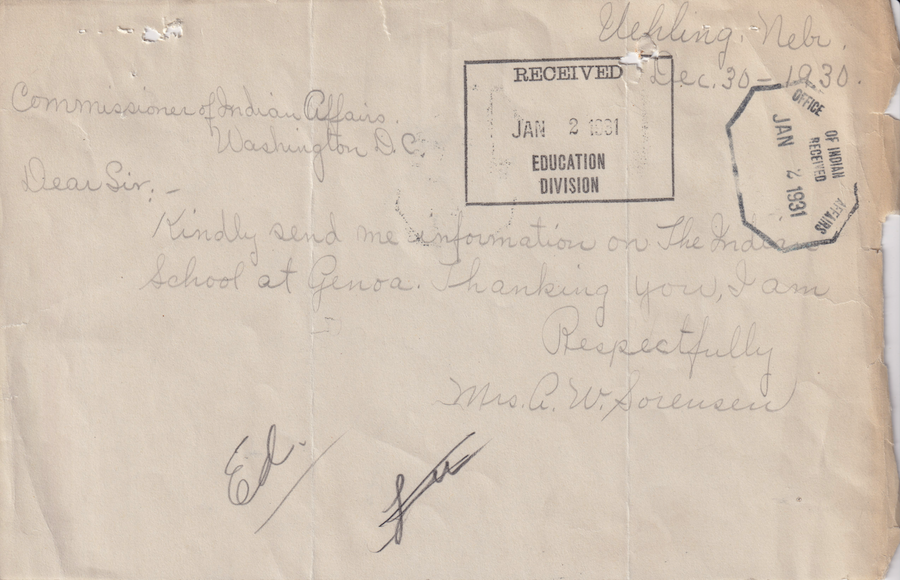 Uehling, Nebr.
Dec. 30 - 1930.
RECEIVED
JAN 2 1931
EDUCATION
DIVISION
OFFICE OF INDIAN AFFAIRS
RECEIVED
JAN 2 1931
Commissioner of Indian Affairs.
Washington D.C.
Dear Sir; -
Kindly send me information on The Indian
School at Genoa. Thanking you, I am
Respectfully
Mrs. A. W. Sorensen
Ed.